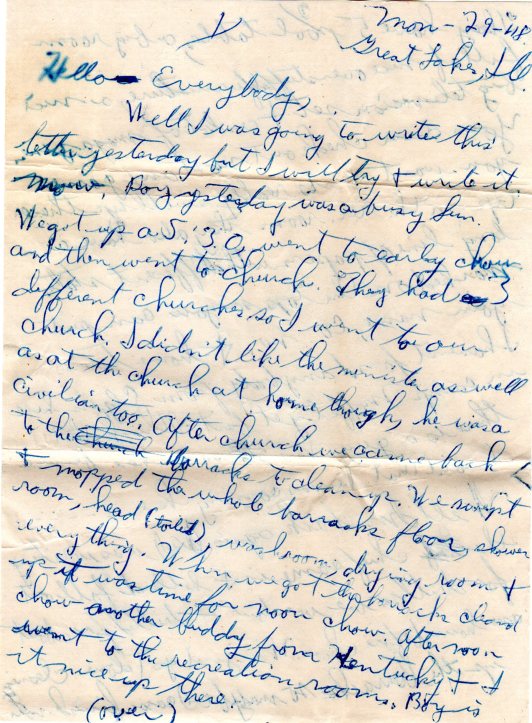 1
Mon - 29 - 48
Great Lakes, Ill.
Hello Everybody,
Well I was going to write this
letter yesterday but I will try + write it
now. Boy ysterday was a busy Sun.
We got up a 5:30, went to early chow
and then went to church. They had 3
different churches so I went to our
church. I didn't like the minister as well
as at the church at home though, he was a
civilian too. After church we came back
to the church barracks to clean up. We swept
+ mopped the whole barracks floor, shower
room, head (toilet), washroom, drying room +
everything. When we got the barracks cleand
up it was time for noon chow. After noon
chow another buddy from Kentucky + I
went to the recreation rooms. Boy is
it nice up there.
(over)